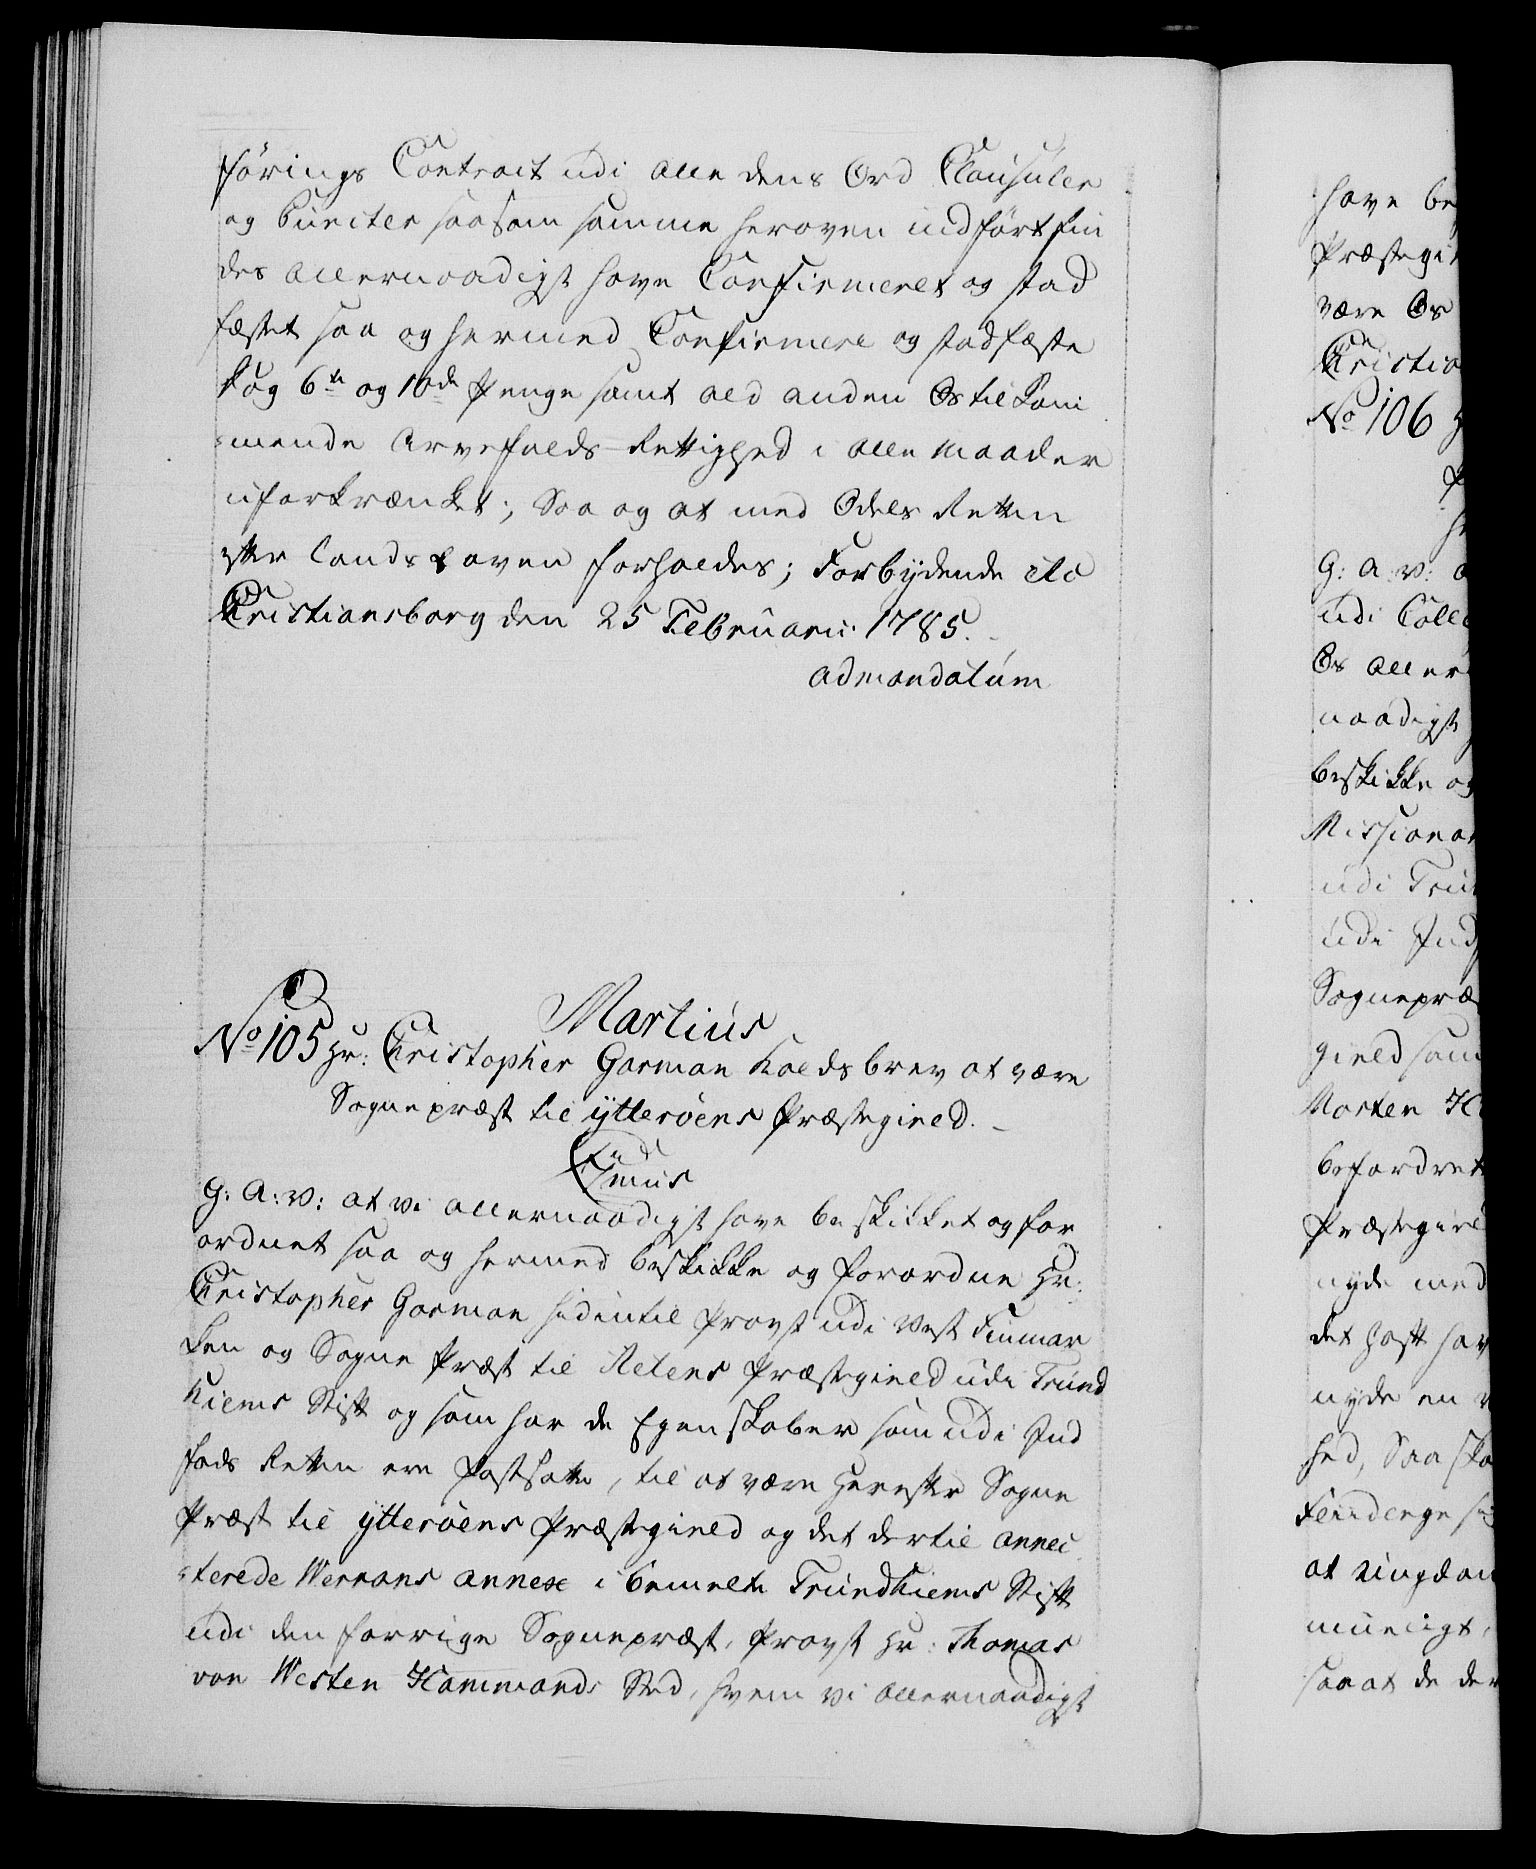 førings Contract udi alle dens Ord Clausuler
og Puncter saasom samme heroven indført fin
des allernaadigst have Confirmeret og stad
fæstet saa og hermed Confirmere og stadfæste
Dog 6te og 10de Penge samt ald anden Os tilkom
mende Arvefalds-Rettighed i alle Maader
uforkrænket; Saa og at med Odels Retten
efter Lands Loven forholdes; Forbydende etc
Christiansborg den 25 Februarii 1785.
admandatum
Martius
No 105 Hr: Christopher Garman Kaldsbrev at være
Sognepræst til ytterøens Præstegield.
G: A: V: at vi allernaadigst have beskikket og for
ordnet saa og hermed beskikke og forordne Hr:
Christopher Garman hidindtil Provst udi Vest Finmar
ken og Sogne Præst til Præstegield udi Trund
hiems Stift og som har de Egenskaber som udi Ind
føds Retten ere fastsatte, til at være herefter Sogne
Præst til ytterøens Præstegield og det dertil annec
terede Werrans annex i bemelte Trundhiems Stift
udi den forrige Sognepræst, Provst Hr: Thomas
von Westen Hammonds Sted, hvem vi allernaadigst
have be
Præstegi
være Os
Christia
No 106
G: A: V:
udi Colle
Os aller
naadigst
beskikke og
Missiona
udi Trun
udi Ind
Sognepræ
gield som
Morten H
befordret
Præstegiel
nyde med
det
nyde en
hed, Saa ska
at ungdom
mueligt,
saa at de der